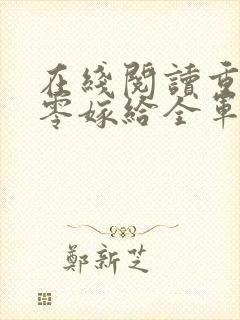 在綫閱讀重
零嫁給全軍
鄭新芝